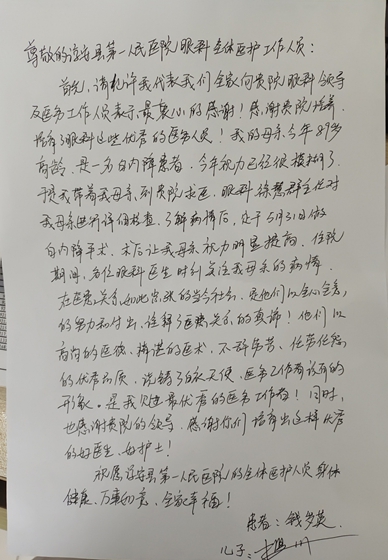 尊敬的淳安县第一人民医院眼科全体医护工作人员:
首先,请允许我代表我们全家向贵院眼科领导
及医务工作人员表示最衷心的感谢!感谢贵院培养
培育了眼科这些优秀的医务人员!我的母亲今年89岁
高龄,是一名白内障患者,今年视力已经很模糊了
于是我带着我母亲到贵院求医,眼科徐慧群主任对
我母亲进行详细检查,了解病情后,处于5月31日做
白内障手术,术后让我母亲视力明显提高,住院
期间,各位眼科医生时刻关注我母亲的病情
在医患关系如此紧张的当今社会,是他们以全心全意
的努力和付出,诠释了医患关系的真谛!他们以
高尚的医德、精湛的医术,不辞劳苦、任劳任怨
的优秀品质,诠释了白衣天使、医务工作者该有的
形象。是我见过最优秀的医务工作者!同时,
也感谢贵院的领导,感谢你们培育出这样优秀
的好医生,好护士!
祝愿淳安县第一人民医院的全体医护人员身体
健康、万事如意、全家幸福!
患者:钱多英
儿子: